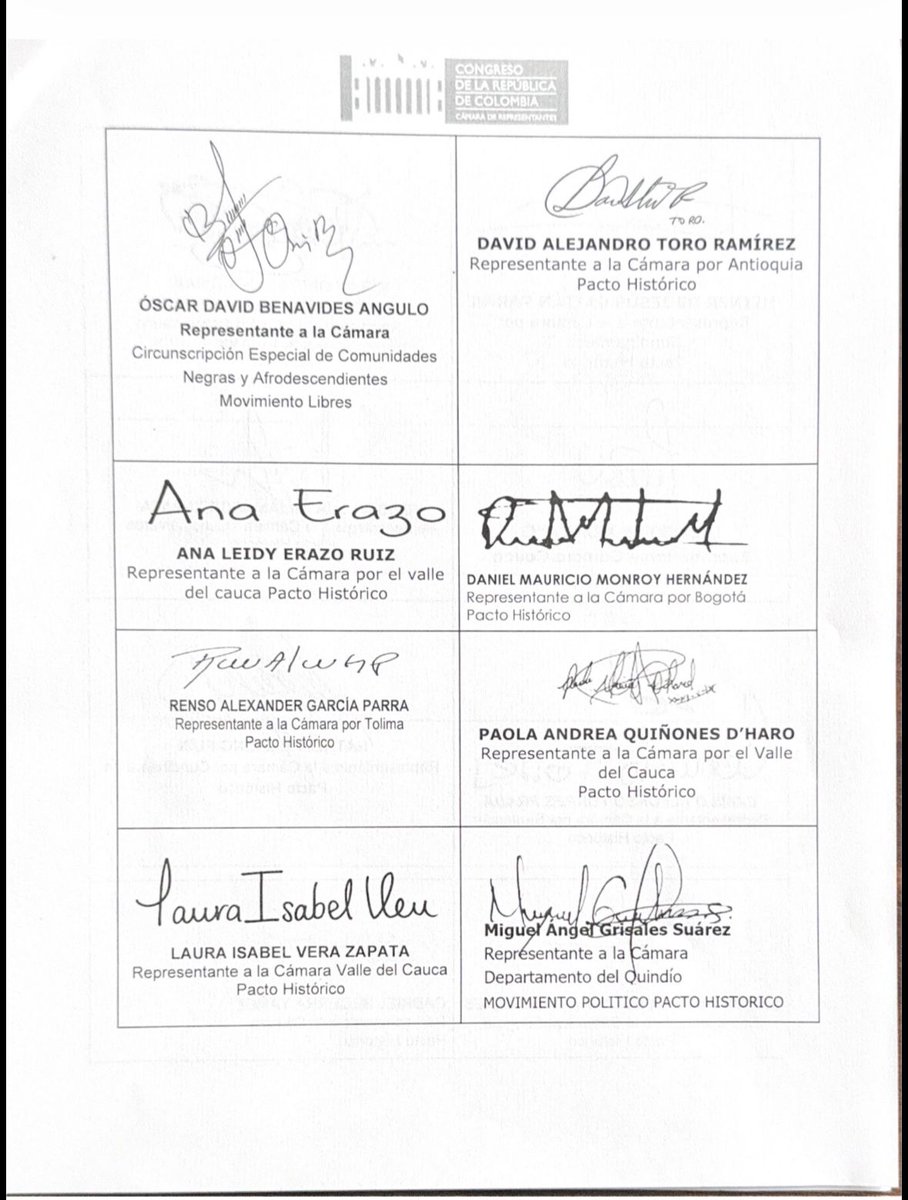 CONGRESO
DE LA REPÚBLICA
DE COLOMBIA
CÁMARA DE REPRESENTANTES
ÓSCAR DAVID BENAVIDES ANGULO
Representante a la Cámara
Circunscripción Especial de Comunidades
Negras y Afrodescendientes
Movimiento Libres
TORO.
DAVID ALEJANDRO TORO RAMÍREZ
Representante a la Cámara por Antioquia
Pacto Histórico
Ana Erazo
ANA LEIDY ERAZO RUIZ
Representante a la Cámara por el valle
del cauca Pacto Histórico
DANIEL MAURICIO MONROY HERNÁNDEZ
Representante a la Cámara por Bogotá
Pacto Histórico
RENSO ALEXANDER GARCÍA PARRA
Representante a la Cámara por Tolima
Pacto Histórico
PAOLA ANDREA QUIÑONES D’HARO
Representante a la Cámara por el Valle
del Cauca
Pacto Histórico
Laura Isabel
LAURA ISABEL VERA ZAPATA
Representante a la Cámara Valle del Cauca
Pacto Histórico
Miguel Ángel Grisales Suárez
Representante a la Cámara
Departamento del Quindío
MOVIMIENTO POLITICO PACTO HISTORICO